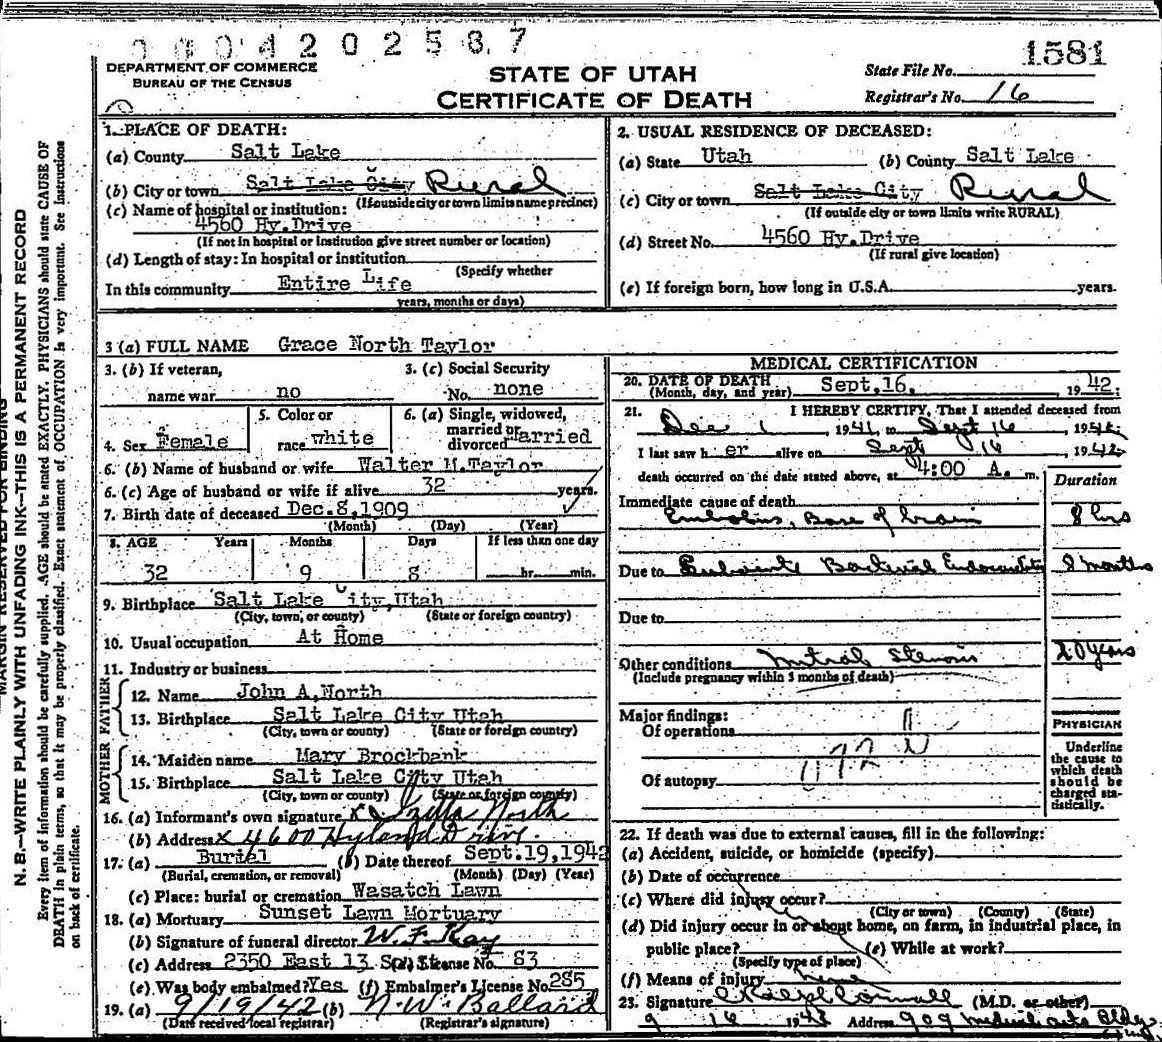 0004202567
1581
DEPARTMENT OF COMMERCE
BUREAU OF THE CENSUS
STATE OF UTAH
CERTIFICATE OF DEATH
State File No.
Registrar's No. 16
MARGIN RESERVED FOR BINDING
N. B.—WRITE PLAINLY WITH UNFADING INK—THIS IS A PERMANENT RECORD
Every item of information should be carefully supplied. AGE should be stated EXACTLY. PHYSICIANS should state CAUSE OF
DEATH in plain terms, so that it may be properly classified. Exact statement of OCCUPATION is very important. See Instructions
on back of certificate.
1. PLACE OF DEATH:
(a) County Salt Lake
(b) City or town Salt Lake City Rural
(If outside city or town limits name precinct)
(c) Name of hospital or institution:
4560 Hy.Drive
(If not in hospital or institution give street number or location)
(d) Length of stay: In hospital or institution
(Specify whether
In this community Entire Life
years, months or days)
2. USUAL RESIDENCE OF DECEASED:
(a) State Utah (b) County Salt Lake
(c) City or town Salt Lake City Rural
(If outside city or town limits write RURAL)
(d) Street No. 4560 Hy.Drive
(If rural give location)
(e) If foreign born, how long in U.S.A. years.
3 (a) FULL NAME Grace North Taylor
3. (b) If veteran,
name war no
3. (c) Social Security
No. none
4. Sex Female
5. Color or
race white
6. (a) Single, widowed,
married or
divorced Married
6. (b) Name of husband or wife Walter M.Taylor
6. (c) Age of husband or wife if alive 32 years.
7. Birth date of deceased Dec.8,1909
(Month) (Day) (Year)
8. AGE Years Months Days If less than one day
32 9 8 hr. min.
9. Birthplace Salt Lake City,Utah
(City, town, or county) (State or foreign country)
10. Usual occupation At Home
11. Industry or business
FATHER
12. Name John A.North
13. Birthplace Salt Lake City Utah
(City, town or county) (State or foreign country)
MOTHER
14. Maiden name Mary Brockbank
15. Birthplace Salt Lake City Utah
(City, town or county) (State or foreign country)
16. (a) Informant's own signature X Izella North
(b) Address X 4600 Hyland Drive.
17. (a) Burial (b) Date thereof Sept.19,1942
(Burial, cremation, or removal) (Month) (Day) (Year)
(c) Place: burial or cremation Wasatch Lawn
18. (a) Mortuary Sunset Lawn Mortuary
(b) Signature of funeral director W. F. Kay
(c) Address 2350 East 13 So. (d) License No. 83
(e) Was body embalmed? Yes (f) Embalmer's License No. 285
19. (a) 9/19/42 (b) N. W. Ballard
(Date received local registrar) (Registrar's signature)
MEDICAL CERTIFICATION
20. DATE OF DEATH Sept.16. 1942.
(Month, day, and year)
21. I HEREBY CERTIFY, That I attended deceased from
Dec 1 1941, to Sept 16 1942
I last saw her alive on Sept 16, 1942
death occurred on the date stated above, at 4:00 A. m.
Duration
Immediate cause of death
Embolus, Base of brain 8 hrs
Due to Subacute Bacterial Endocarditis 8 months
Due to
Other conditions Mitral Stenosis 20 years
(Include pregnancy within 3 months of death)
Major findings:
Of operations
Of autopsy
PHYSICIAN
Underline
the cause to
which death
should be
charged sta-
tistically.
22. If death was due to external causes, fill in the following:
(a) Accident, suicide, or homicide (specify)
(b) Date of occurrence
(c) Where did injury occur?
(City or town) (County) (State)
(d) Did injury occur in or about home, on farm, in industrial place, in
public place? (e) While at work?
(Specify type of place)
(f) Means of injury
23. Signature (M.D. or other)
9 16 1942 Address 909 Medical Arts Bldg